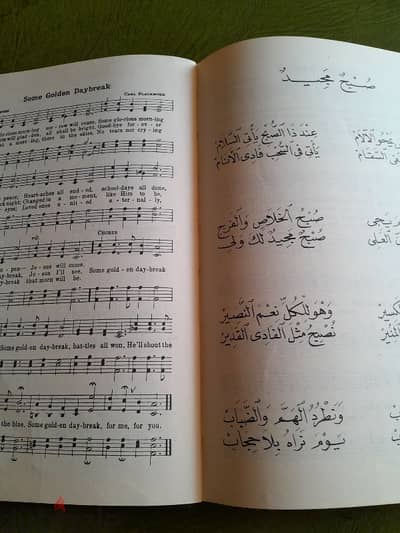 Some Golden Daybreak
CARL BLACKMORE
morrow will come, Some glorious morning
will gladden, all shall be bright, Good-bye for-ev-er
a meeting, there in the skies, No tears nor cry-ing
peace; Heart-aches all end-ed, school-days all done,
night; Changed in a mo-ment, like Him to be,
eyes; Loved ones u-nit-ed e-ter-nal-ly,
CHORUS
o-pen— Je-sus will come.
daybreak, Je-sus I'll see. Some gold-en daybreak
that morn will be.
Some gold-en daybreak, bat-tles all won, He'll shout the
the blue, Some gold-en daybreak, for me, for you.
صُبْحٌ مَجِيدٌ
عِنْدَ ذَا الصُّبْحِ يَأْتِي السَّلَامْ
يَأْتِي فِي السُّحْبِ فَادِي الْأَنَامْ
صُبْحُ الْخَلَاصِ وَالْفَرَجْ
صُبْحٌ مَجِيدٌ لَكَ وَلِي
وَهْوَ لِلْكُلِّ نِعْمَ النَّصِيرْ
نُصْبِحُ مِثْلَ الْفَادِي الْقَدِيرْ
وَنَطْرُدُ الْهَمَّ وَالضَّبَابْ
يَوْمَ نَرَاهُ بِلَا حِجَابْ